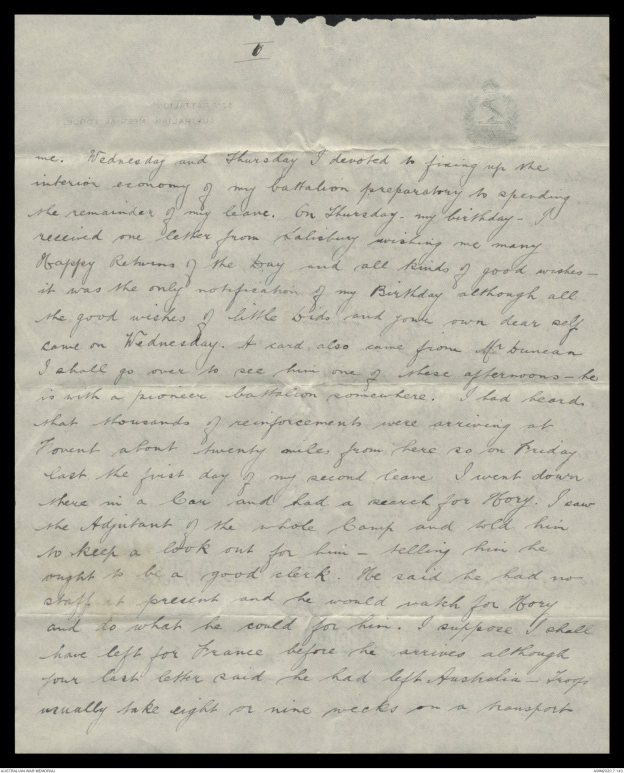 6
me. Wednesday and Thursday I devoted to fixing up the
interior economy of my battalion preparatory to spending
the remainder of my leave. On Thursday - my birthday - I
received one letter from Salisbury wishing me many
Happy Returns of the Day and all kinds of good wishes -
it was the only notification of my Birthday although all
the good wishes of little Dids and your own dear self
came on Wednesday. A card also came from Mr Duncan
I shall go over to see him one of these afternoons - he
is with a pioneer battalion somewhere. I had heard
that thousands of reinforcements were arriving at
Fovent about twenty miles from here so on Friday
last the first day of my second leave I went down
there in a Car and had a search for Hory. I saw
the Adjutant of the whole Camp and told him
to keep a look out for him - telling him he
ought to be a good clerk. He said he had no
staff at present and he would watch for Hory
and do what he could for him. I suppose I shall
have left for France before he arrives although
your last letter said he had left Australia - Troops
usually take eight or nine weeks on a transport
AUSTRALIAN WAR MEMORIAL